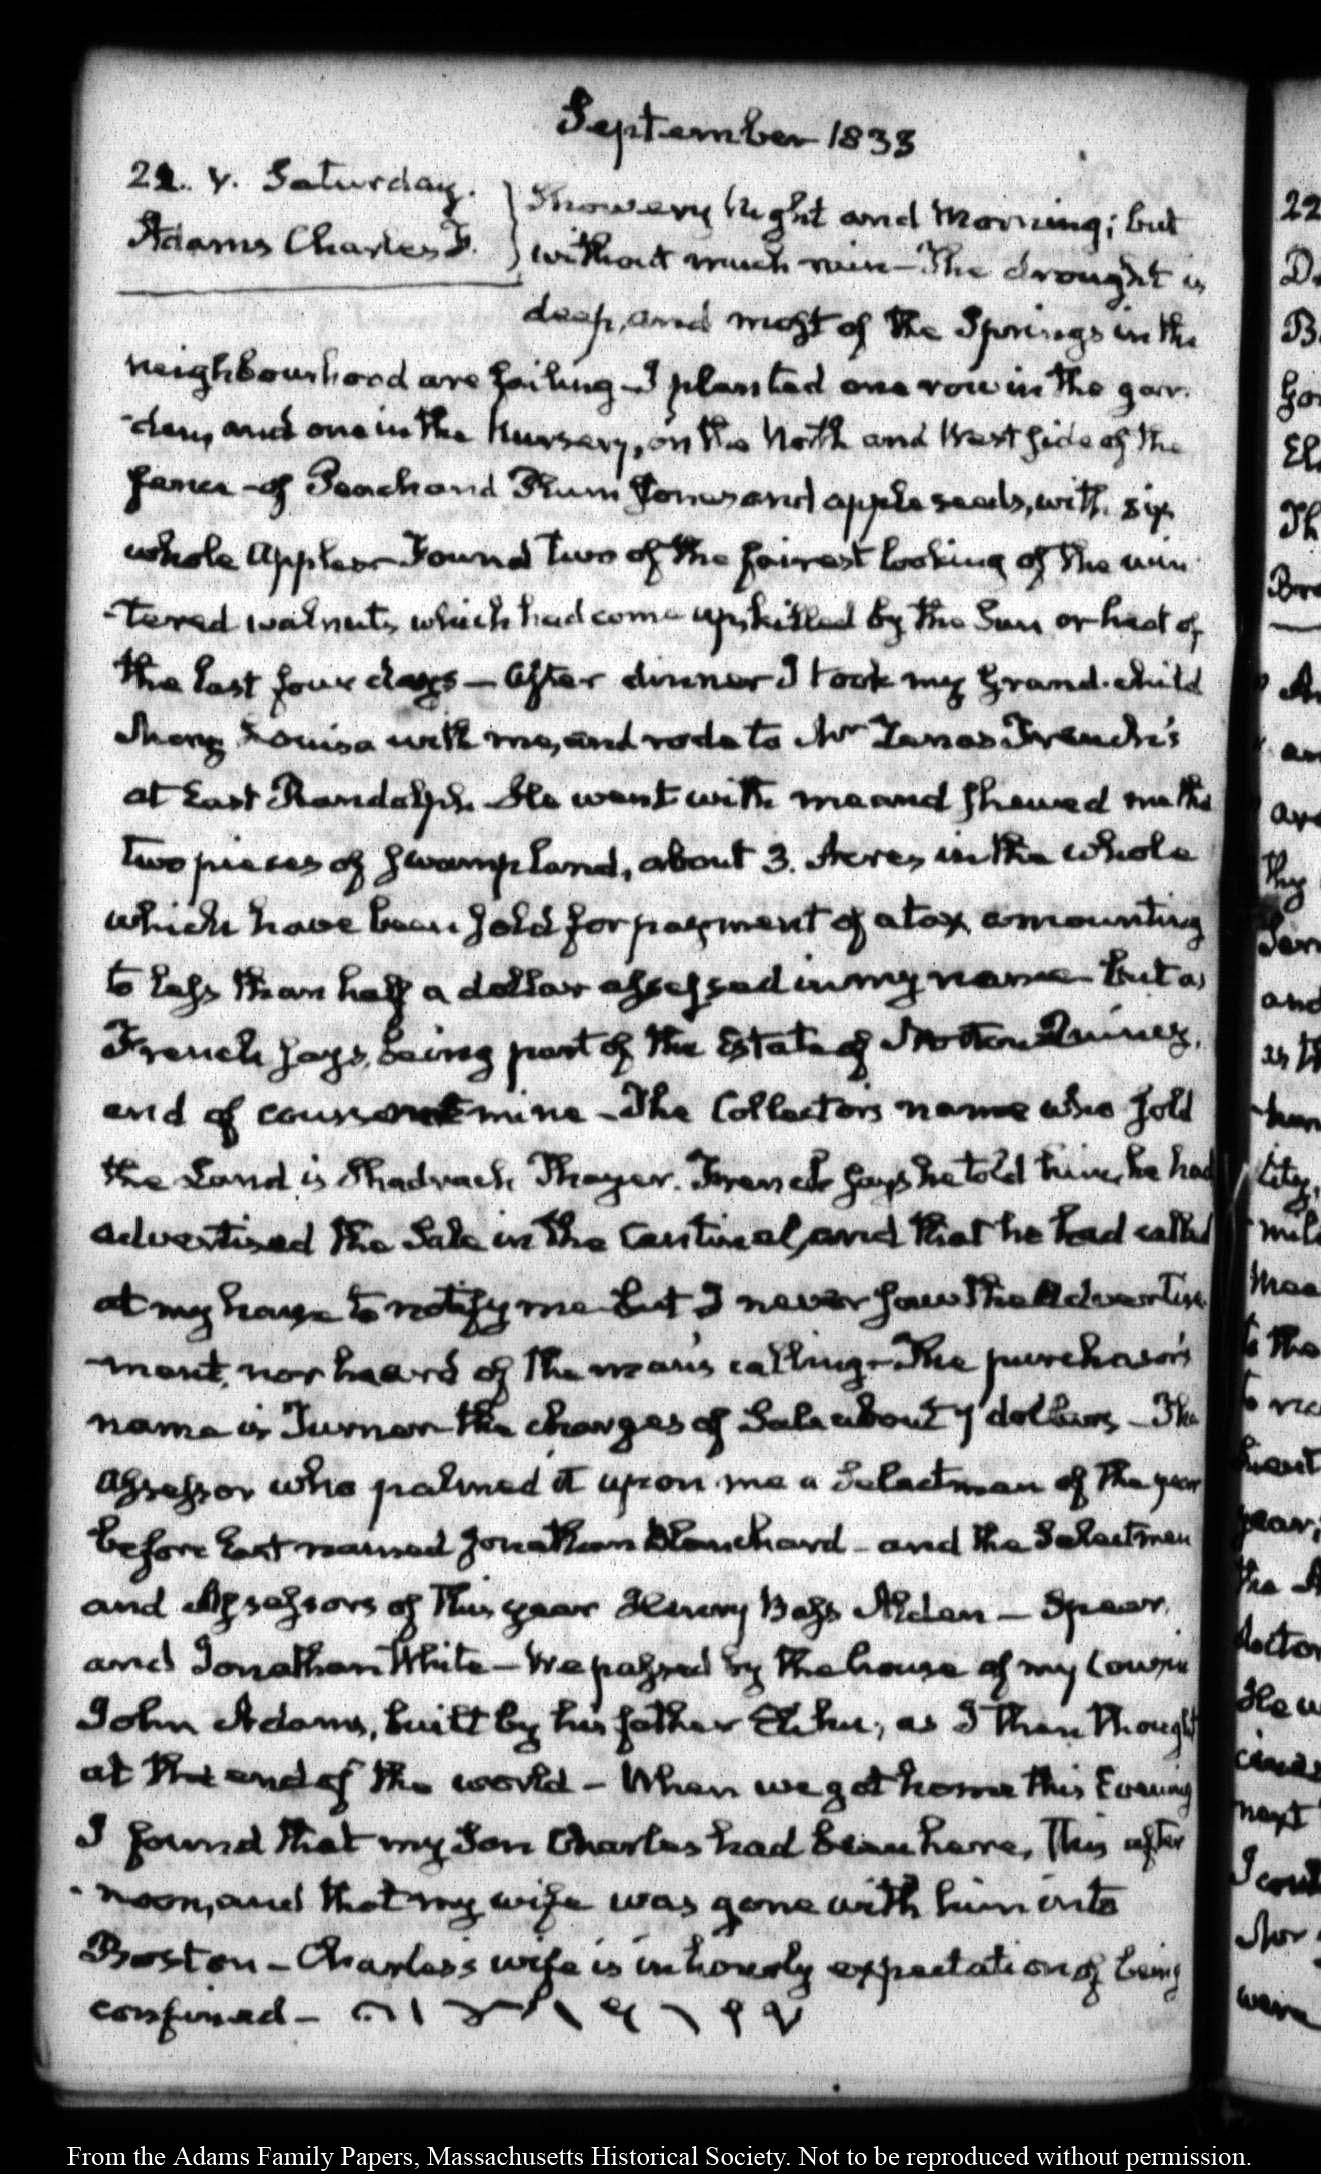 September 1833
21. V. Saturday.
Adams Charles F.
Showery Night and Morning; but
without much rain — The drought is
deep, and most of the Springs in the
neighbourhood are failing — I planted one row in the gar-
-den, and one in the Nursery, on the North and West side of the
fence — of Peach and Plum stones and apple seeds, with six
whole Apples — Found two of the fairest looking of the win-
-tered walnuts which had come up, killed by the Sun or heat of
the last four days — After dinner I took my Grand-child
Mary Louisa with me, and rode to Mr French's
at East Randolph. He went with me and shewed me the
two pieces of swamp land, about 3. Acres in the whole
which have been sold for payment of a tax amounting
to less than half a dollar assessed in my name — but as
French says, being part of the Estate of Norton Quincy,
and of course not mine — The Collectors name who sold
the Land is Shadrach Thayer. French says he told him, he had
advertised the Sale in the Centinel, and that he had called
at my house to notify me — but I never saw the Advertise-
-ment, nor heard of the man's calling — The purchaser's
name is Turner — the charges of Sale about 7 dollars — The
Assessor who palmed it upon me a Selectman of the year
before last named Jonathan Blanchard — and the Selectmen
and Assessors of this year Henry Bass Alden — Spear,
and Jonathan White — We passed by the house of my Cousin
John Adams, built by his father Elihu, as I then thought
at the end of the world — When we got home this Evening
I found that my Son Charles had been here, this after-
-noon, and that my wife was gone with him into
Boston — Charles's wife is in hourly expectation of being
confined —
22
From the Adams Family Papers, Massachusetts Historical Society. Not to be reproduced without permission.